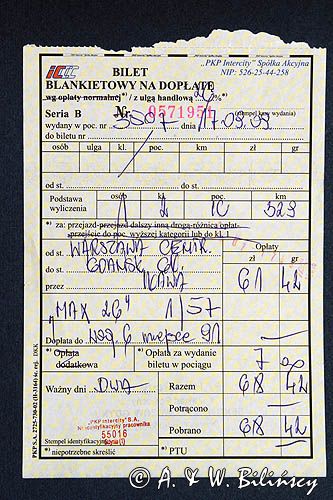 „PKP Intercity” Spółka Akcyjna
NIP: 526-25-44-258
ICCC BILET
BLANKIETOWY NA DOPŁATĘ
wg opłaty normalnej*/ z ulgą handlową 26 %*)
Seria B Nr 0571951
wydany w poc. nr 5507 dnia 17.09.09 (stempel kasy wydania)
do biletu nr
osób ulga kl. poc. osób kl. poc. zł gr
od st. do st.
Podstawa wyliczenia osób kl. poc. km
1 2 IC 523
*) za: przejazd-przejazd dalszy inną drogą-różnicą opłat-
przejście do poc. wyższej kategorii lub do kl. 1.
od st. WARSZAWA CENTR. Opłaty
do st. GDAŃSK GŁ. zł gr
przez IŁAWA 61 42
„MAX 26” 1/57
Dopłata do wag 6 miejsce 91
*) Opłata dodatkowa *) Opłata za wydanie biletu w pociągu 7 00
Ważny dni DWA Razem 68 42
Potrącono
„PKP Intercity” S.A.
Nr identyfikacyjny pracownika
55016
Pobrano 68 42
Stempel identyfikacyjny
*) niepotrzebne skreślić *) PTU
PKP S.A. 2725-730-02 (H-3160) śc. rej. DKK
© A. & W. Bilińscy